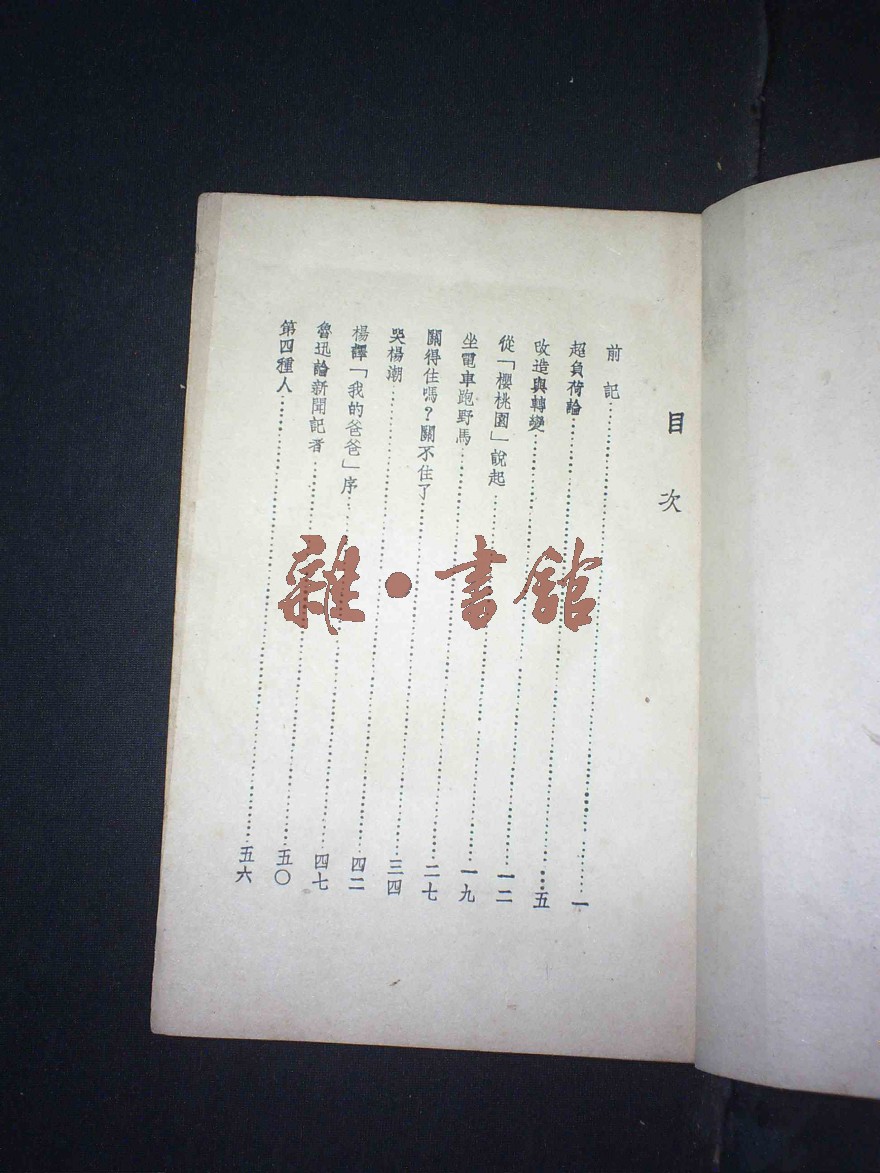 目次
前記……一
超負荷論……五
改造與轉變……一二
從「櫻桃園」說起……一九
坐電車跑野馬……二七
關得住嗎？關不住了……三四
哭楊潮……四二
楊譯「我的爸爸」序……四七
魯迅論新聞記者……五〇
第四種人……五六
雜·書館